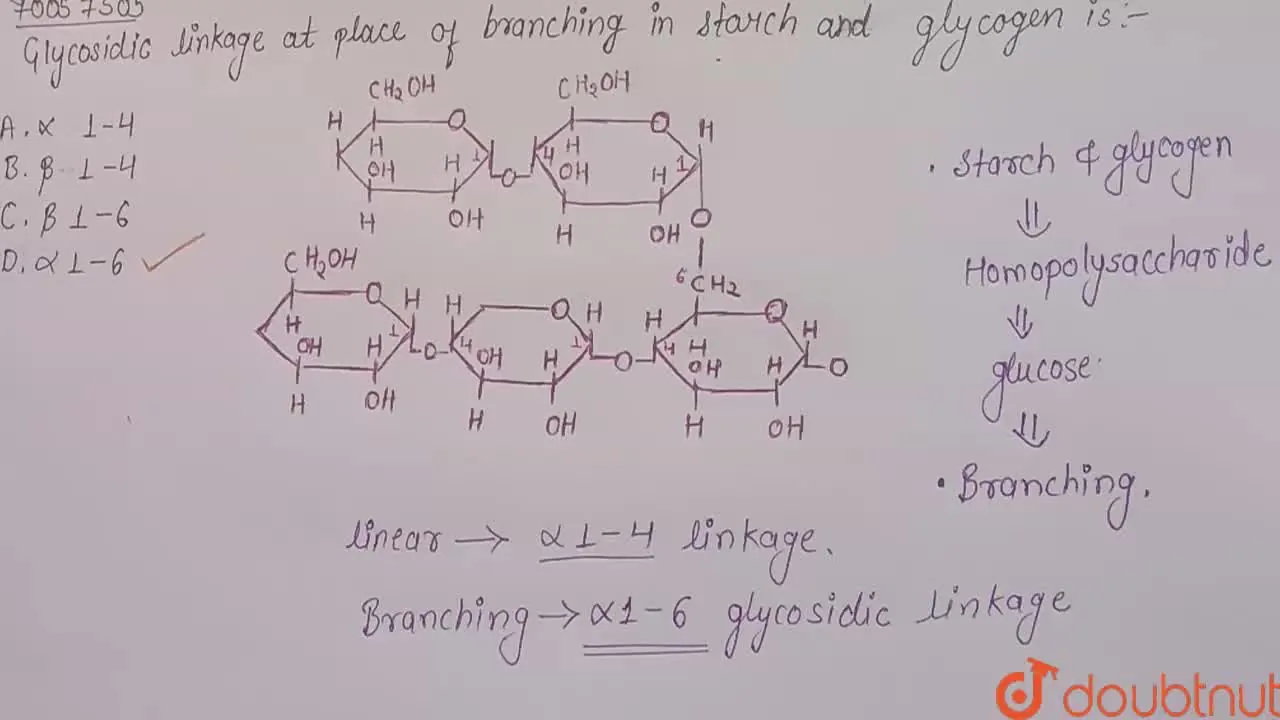 70057505
Glycosidic linkage at place of branching in starch and glycogen is:-
A. α 1-4
B. β 1-4
C. β 1-6
D. α 1-6
CH2OH CH2OH
H O O H
H H 4 H 1
OH H 1 O OH H
H OH H OH O
6 CH2
CH2OH
O H H O H H O H
H 1 4 1 4 H
OH H O OH H O OH H O
H OH H OH H OH
• Starch & glycogen
⇓
Homopolysaccharide
⇓
glucose
⇓
• Branching.
linear → α 1-4 linkage.
Branching → α1-6 glycosidic linkage
doubtnut